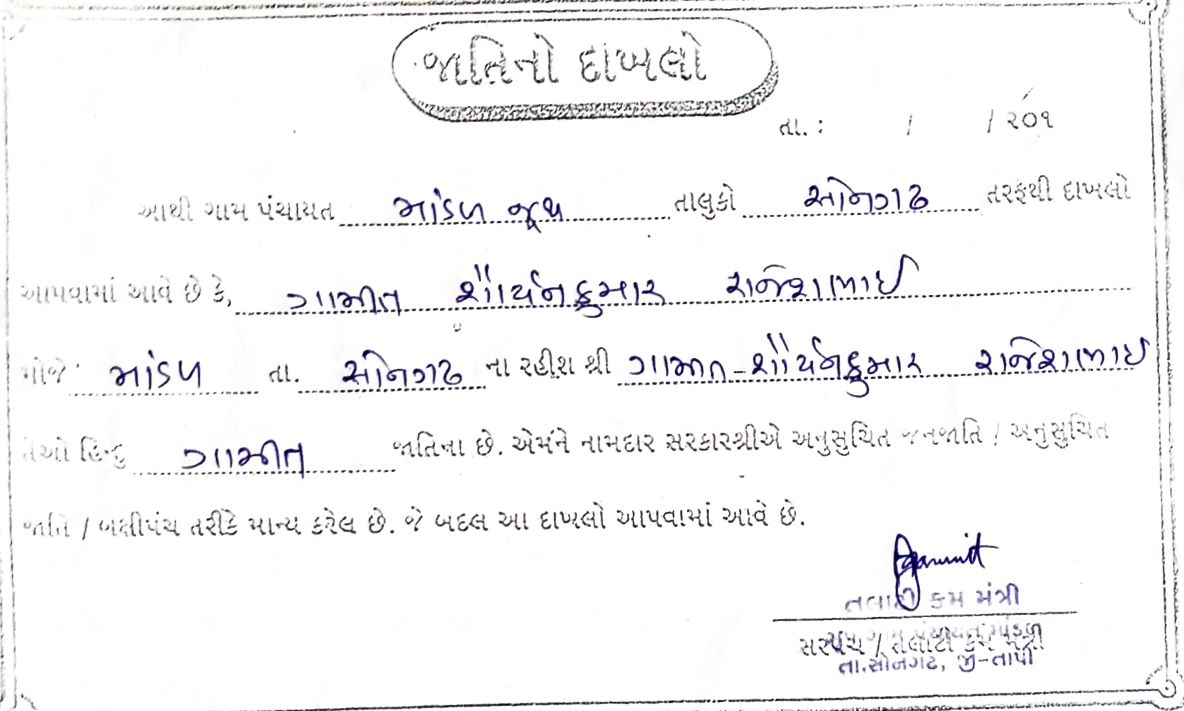 જાતિનો દાખલો
તા. : / / ૨૦૧
આથી ગામ પંચાયત માંડળ જૂથ તાલુકો સોનગઢ તરફથી દાખલો
આપવામાં આવે છે કે, ગામીત શૌર્યનકુમાર રાજેશભાઈ
મોજે માંડળ તા. સોનગઢ ના રહીશ શ્રી ગામીત શૌર્યનકુમાર રાજેશભાઈ
તેઓ હિન્દુ ગામીત જાતિના છે. એમને નામદાર સરકારશ્રીએ અનુસુચિત જનજાતિ / અનુસુચિત
જાતિ / બક્ષીપંચ તરીકે માન્ય કરેલ છે. જે બદલ આ દાખલો આપવામાં આવે છે.
તલાટી કમ મંત્રી
સરપંચ / તલાટી કમ મંત્રી
તા.સોનગઢ, જી-તાપી